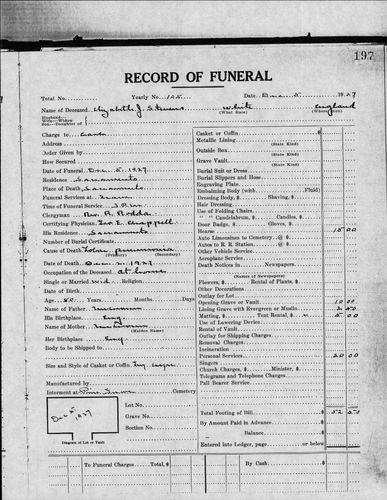 197
RECORD OF FUNERAL
Total No. Yearly No. 125 Date Dec 5 1927
Name of Deceased Elizabeth J. Stevens White England
Husband
Widow
Son—Daughter of
(What Race) (Where Born)
Charge to
Address
Order Given by
How Secured
Date of Funeral Dec. 5, 1927
Residence Sacramento
Place of Death Sacramento
Funeral Services at
Time of Funeral Service 2 P.M.
Clergyman Rev. R. Rodda
Certifying Physician E. Chappell
His Residence Sacramento
Number of Burial Certificate
Cause of Death Lobar pneumonia
(Primary) (Secondary)
Date of Death Dec. 2, 1927
Occupation of the Deceased at home
Single or Married Wid. Religion
Date of Birth
Age 80 Years Months Days
Name of Father Unknown
His Birthplace Eng.
Name of Mother Unknown
(Maiden Name)
Her Birthplace Eng
Body to be Shipped to
Size and Style of Casket or Coffin
Manufactured by
Interment at Cemetery
Dec 5, 1927
Lot No.
Grave No.
Section No.
Diagram of Lot or Vault
Casket or Coffin $
Metallic Lining
(State Kind)
Outside Box
(State Kind)
Grave Vault
(State Kind)
Burial Suit or Dress
Burial Slippers and Hose
Engraving Plate
Embalming Body (with Fluid)
Dressing Body, $ Shaving, $
Hair Dressing
Use of Folding Chairs
" " Candelabrum, $ Candles, $
Door Badge, $ Gloves, $
Hearse 15 00
Auto Limousines to Cemetery @ $
Autos to R. R. Station @ $
Other Vehicle Service
Aeroplane Service
Death Notices in Newspapers
(Names of Newspapers)
Flowers, $ Rental of Plants, $
Other Decorations
Outlay for Lot
Opening Grave or Vault 10 00
Lining Grave with Evergreen or Muslin 2 50
Matting, $ Tent Rental, $ 5 00
Use of Lowering Device
Rental of Vault
Outlay for Shipping Charges
Removal Charges
Incineration
Personal Services 20 00
Singers
Church Charges, $ Minister, $
Telegrams and Telephone Charges
Pall Bearer Service
Total Footing of Bill $ 52 50
By Amount Paid in Advance $
Balance $
Entered into Ledger, page or below
To Funeral Charges Total $ By Cash $